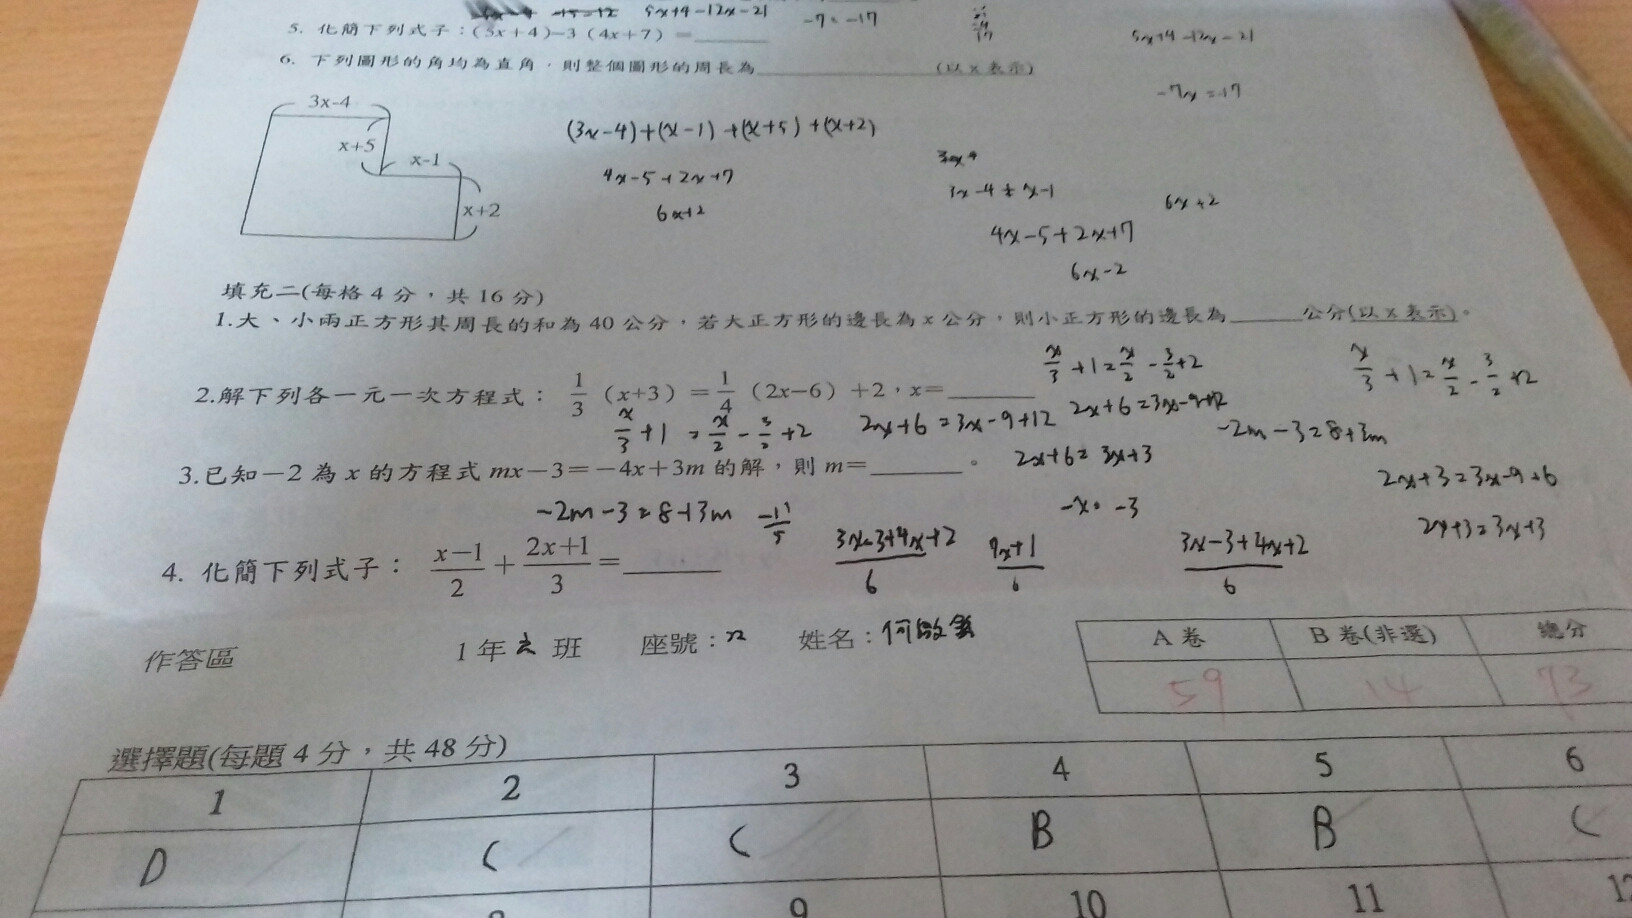 5x+4-12x-21
-7=-17
5. 化簡下列式子：(5x+4)-3（4x+7）=
5x+4-12x-21
6. 下列圖形的角均為直角，則整個圖形的周長為 (以 x 表示)
-7x=-17
3x-4
x+5
x-1
x+2
(3x-4)+(x-1)+(x+5)+(x+2)
4x-5+2x+7
6x+2
3x-4+x-1
6x+2
4x-5+2x+7
6x-2
填充二(每格 4 分，共 16 分)
1.大、小兩正方形其周長的和為 40 公分，若大正方形的邊長為 x 公分，則小正方形的邊長為 公分(以 x 表示)。
x/3+1=x/2-3/2+2
x/3+1=x/2-3/2+2
2.解下列各一元一次方程式： 1/3（x+3）=1/4（2x-6）+2，x=
x/3+1=x/2-3/2+2
2x+6=3x-9+12
2x+6=3x-9+12
-2m-3=8+3m
3.已知-2 為 x 的方程式 mx-3=-4x+3m 的解，則 m= 。
2x+6=3x+3
2x+3=3x-9+6
-2m-3=8+3m
-11/5
-x=-3
2x+3=3x+3
4. 化簡下列式子： (x-1)/2+(2x+1)/3=
(3x-3+4x+2)/6
(3x-3+4x+2)/6
作答區
1 年 班 座號： 姓名：
A 卷 B 卷(非選) 總分
59 14 73
選擇題(每題 4 分，共 48 分)
1 2 3 4 5 6
D C C B B C
9 10 11